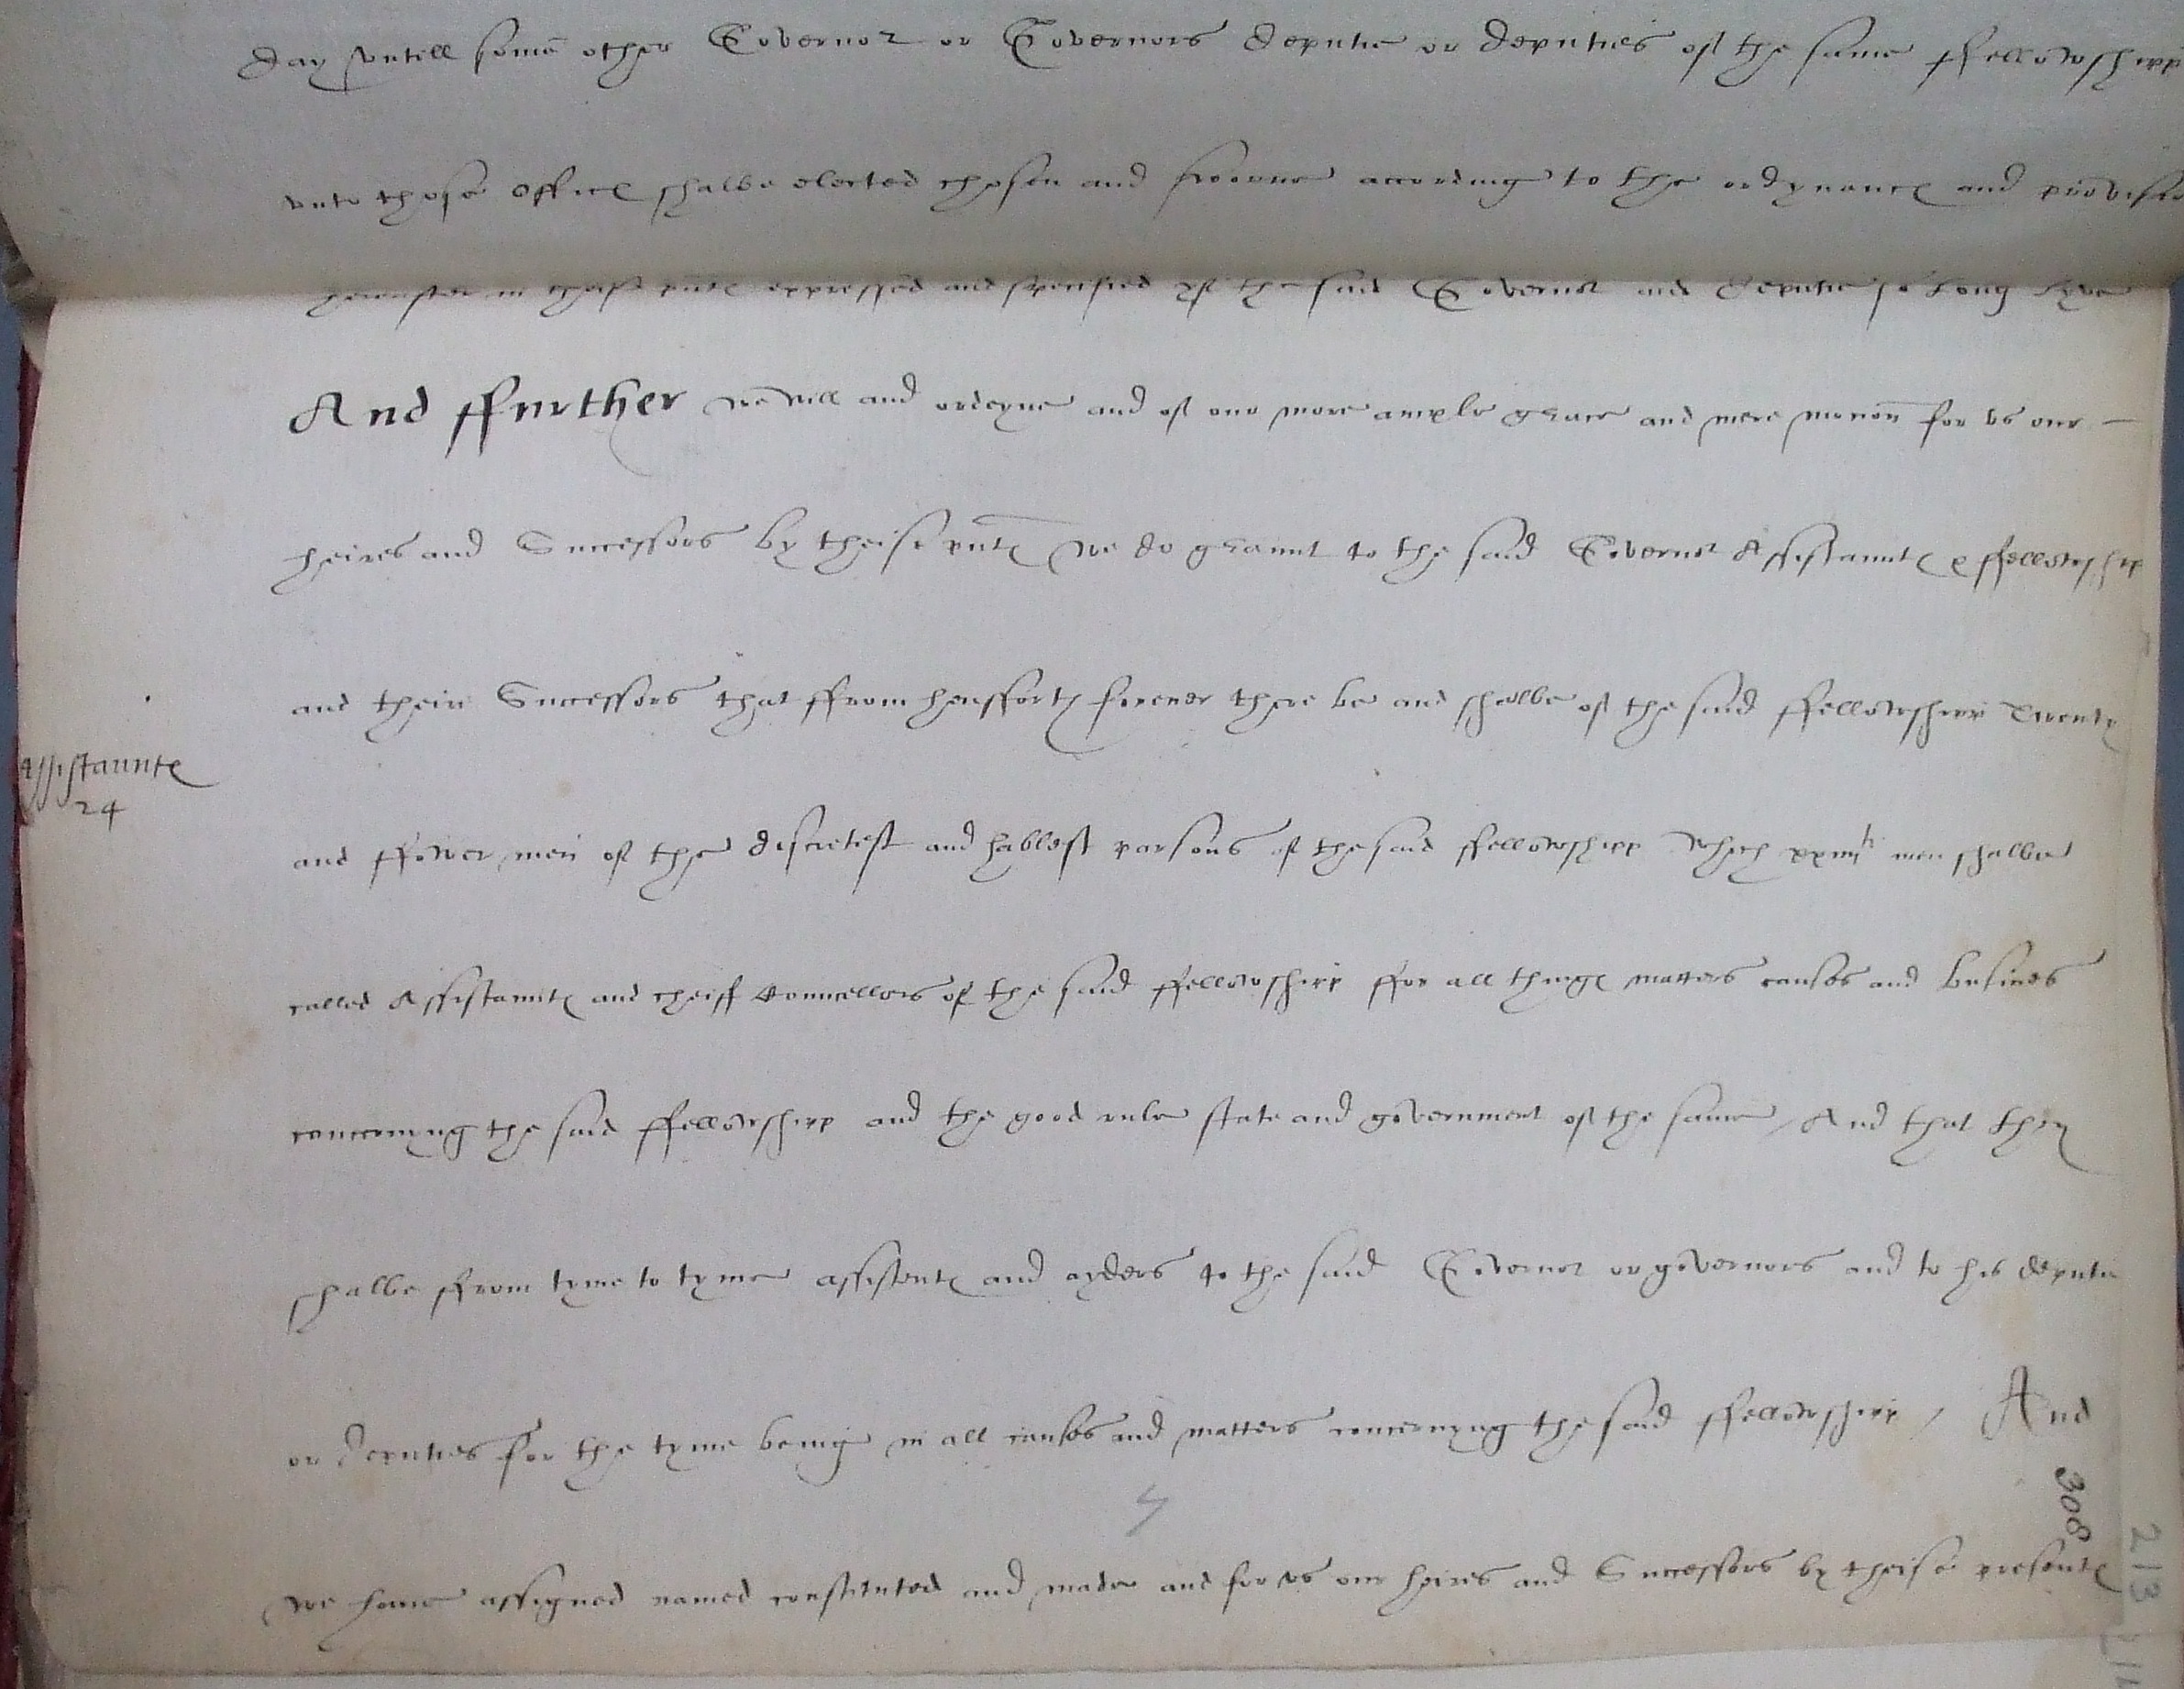 day vntill some other Governor or Governors deputie or deputies of the same ffellowshipp
vnto those Office shalbe elected chosen and sworne according to the ordynance and provisio
hereafter in theise pnte expressed and specified yf the said Governor and deputie so long lyve
And ffurther we will and ordeyne and of our more ample grace and mere mocon for vs our
heires and Successors by theise pnte we do graunt to the said Governor Assistaunte & ffellowship
and their Successors that ffrom hensforth forever there be and shalbe of the said ffellowshipp Twenty
Assistaunte
24
and ffower men of the discretest and hablest parsons of the said ffellowshipp which xxiiijti men shalbe
called Assistaunte and cheiff Councellors of the said ffellowshipp ffor all thinge matters causes and busines
concernyng the said ffellowshipp and the good rule state and government of the same / And that they
shalbe ffrom tyme to tyme assistente and ayders to the said Governor or governors and to his deputie
or deputies for the tyme being in all causes and matters concernyng the said ffellowshipp / And
308
213
we have assigned named constituted and made and for vs our heires and Successors by theise presente